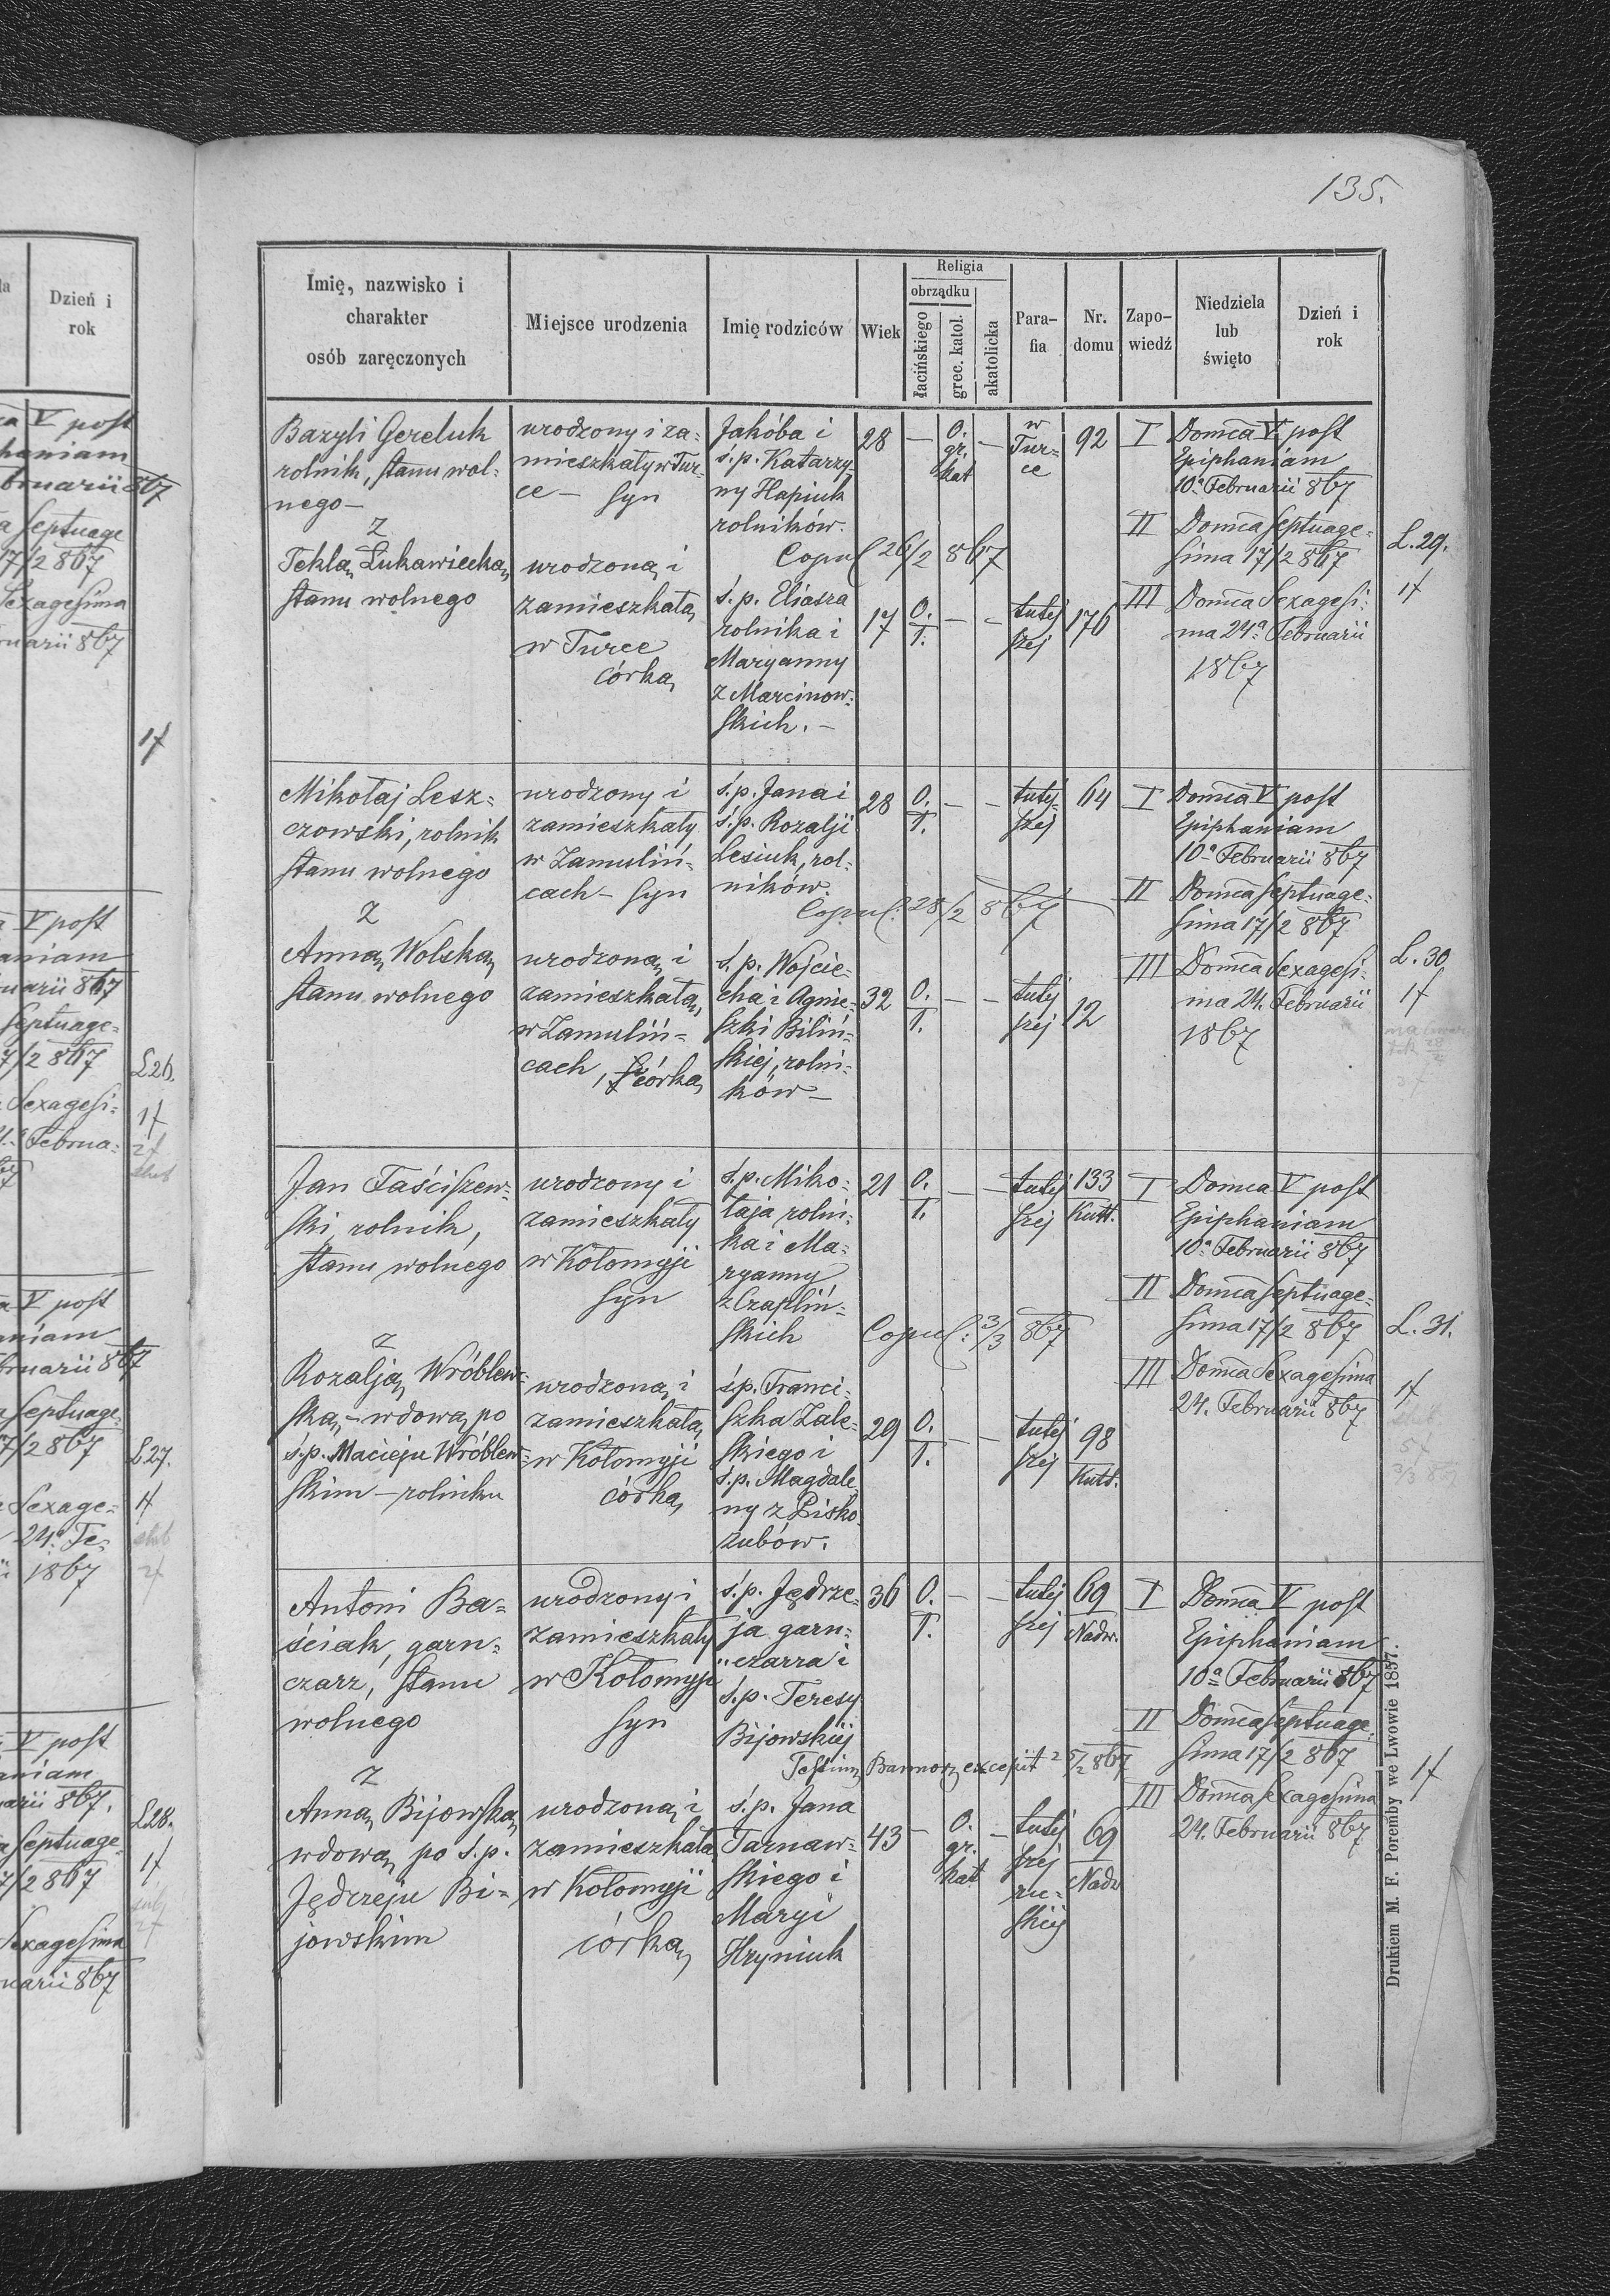 135.
Imię, nazwisko i charakter osób zaręczonych
Miejsce urodzenia
Imię rodziców
Wiek
Religia
obrządku
łacińskiego
grec. katol.
akatolicka
Para-fia
Nr. domu
Zapo-wiedź
Niedziela lub święto
Dzień i rok
Bazyli Gereluk
rolnik, stanu wol-
nego —
z
Teklą Łukawiecką
stanu wolnego
urodzony i za-
mieszkały w Tur-
ce — syn
urodzoną i
zamieszkałą
w Turce
córką
Jakóba i
ś.p. Katarzy-
ny Hapiuk
rolników.
Copul 26/2 867
ś.p. Eliasza
rolnika i
Maryanny
z Marcinow-
skich. —
28 — O. gr. kat —
w Tur-
ce
92
17 O. ł. — —
tutej
szej
176
I Domca V post
Epiphaniam
10a Februarii 867
II Domca Septuage-
sima 17/2 867
III Domca Sexagesi-
ma 24a Februarii
1867
L. 29.
Mikołaj Lesz-
czowski, rolnik
stanu wolnego
z
Anną Wolską
stanu wolnego
urodzony i
zamieszkały
w Zamuliń-
cach — syn
urodzoną i
zamieszkałą
w Zamuliń-
cach, córką
ś.p. Jana i
ś.p. Rozalji
Lesiuk, rol-
ników.
Copul. 28/2 867
ś.p. Wojcie-
cha i Agnie-
szki Biliń-
skiej, rolni-
ków —
28 O. ł. — —
tutej-
szej
64
32 O. ł. — —
tutej
szej
12
I Domca V post
Epiphaniam
10a Februarii 867
II Domca Septuage-
sima 17/2 867
III Domca Sexagesi-
ma 24. Februarii
1867
L. 30
Jan Taściszew-
ski, rolnik,
stanu wolnego
z
Rozalją Wróblew-
ską, — wdową po
ś.p. Macieju Wróblew-
skim — rolniku
urodzony i
zamieszkały
w Kołomyji
syn
urodzoną i
zamieszkałą
w Kołomyji
córką
ś.p. Miko-
łaja rolni-
ka i Ma-
ryanny
z Czapliń-
skich
Copul: 3/3 867
śp. Franci-
szka Zale-
skiego i
ś.p. Magdale
ny z Pisko
zubów.
21 O. ł. — —
tutej
szej
133
Kutt.
29 O. ł. — —
tutej
szej
98
Kutt.
I Domca V post
Epiphaniam
10a Februarii 867
II Domca Septuage-
sima 17/2 867
III Domca Sexagesima
24. Februarii 867
L. 31.
Antoni Ba-
ściak, garn-
czarz, stanu
wolnego
z
Anną Bijowską
wdową po ś.p.
Jędrzeju Bi-
jowskim
urodzony i
zamieszkały
w Kołomyji
syn
urodzoną i
zamieszkałą
w Kołomyji
córką
ś.p. Jędrze-
ja garn-
czarza i
ś.p. Teresy
Bijowskiej
excepit 25/2 867
ś.p. Jana
Tarnaw-
skiego i
Maryi
Hryniuk
36 O. ł. — —
tutej
szej
69
Nadw.
43 — O. gr. kat —
tutej
szej
ru-
skiej
69
Nadw
I Domca V post
Epiphaniam
10a Februarii 867
II Domca Septuage-
sima 17/2 867
III Domca Sexagesima
24. Februarii 867
Drukiem M. F. Poremby we Lwowie 1857.
Dzień i
rok
V post
Septuage
17/2 867
Sexagesima
L26.
L27.
24a Fe-
1867
L28.